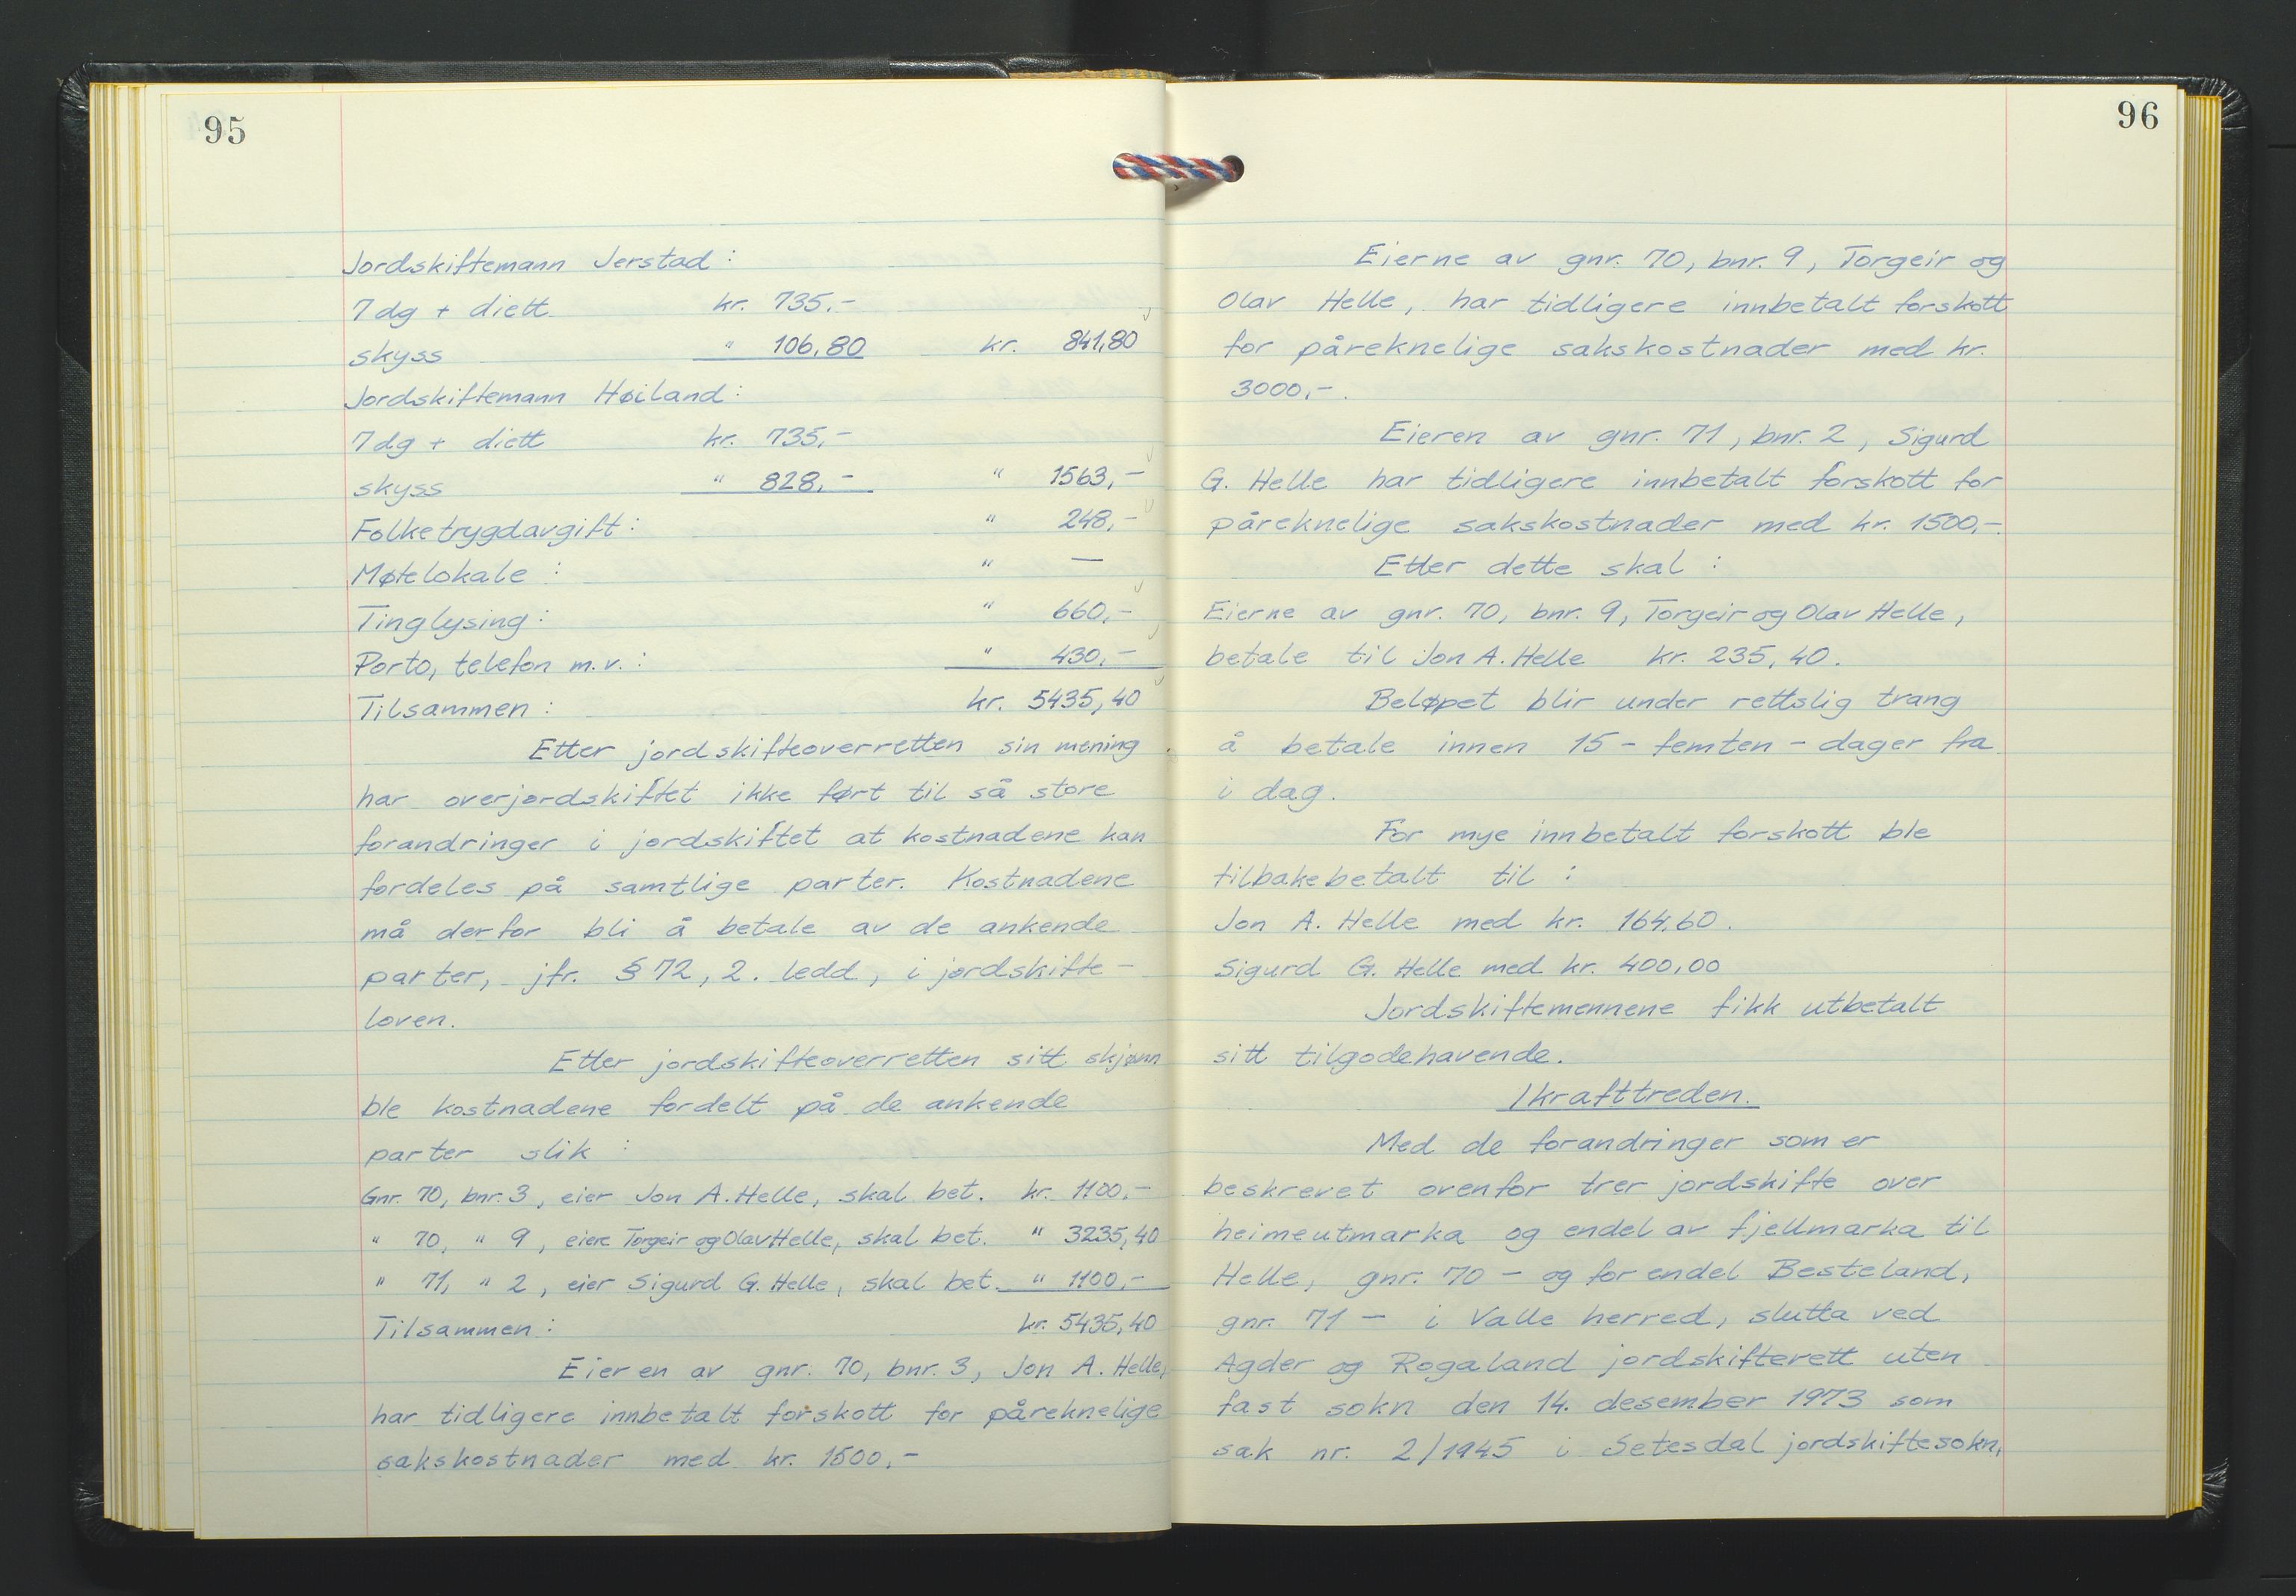 95
Jordskiftemann Jerstad:
7 dg + diett kr. 735.-
skyss " 106,80 kr. 841,80
Jordskiftemann Høiland:
7 dg + diett kr. 735,-
skyss " 828,- " 1563,-
Folketrygdavgift: " 248,-
Møtelokale: " —
Tinglysing: " 660,-
Porto, telefon m.v.: " 430,-
Tilsammen: kr. 5435,40
Etter jordskifteoverretten sin mening
har overjordskiftet ikke ført til så store
forandringer i jordskiftet at kostnadene kan
fordeles på samtlige parter. Kostnadene
må derfor bli å betale av de ankende
parter, jfr. § 72, 2. ledd, i jordskifte-
loven.
Etter jordskifteoverretten sitt skjønn
ble kostnadene fordelt på de ankende
parter slik:
Gnr. 70, bnr. 3, eier Jon A. Helle, skal bet. kr. 1100,-
" 70, " 9, eiere Torgeir og Olav Helle, skal bet. " 3235,40
" 71, " 2, eier Sigurd G. Helle, skal bet. " 1100,-
Tilsammen: kr. 5435,40
Eieren av gnr. 70, bnr. 3, Jon A. Helle,
har tidligere innbetalt forskott for påreknelige
sakskostnader med kr. 1500,-
96
Eierne av gnr. 70, bnr. 9, Torgeir og
Olav Helle, har tidligere innbetalt forskott
for påreknelige sakskostnader med kr.
3000,-.
Eieren av gnr. 71, bnr. 2, Sigurd
G. Helle har tidligere innbetalt forskott for
påreknelige sakskostnader med kr. 1500,-.
Etter dette skal:
Eierne av gnr. 70, bnr. 9, Torgeir og Olav Helle,
betale til Jon A. Helle kr. 235,40.
Beløpet blir under rettslig trang
å betale innen 15 - femten - dager fra
i dag.
For mye innbetalt forskott ble
tilbakebetalt til:
Jon A. Helle med kr. 164,60.
Sigurd G. Helle med kr. 400,00
Jordskiftemennene fikk utbetalt
sitt tilgodehavende.
Ikrafttreden.
Med de forandringer som er
beskrevet ovenfor trer jordskifte over
heimeutmarka og endel av fjellmarka til
Helle, gnr. 70 - og for endel Besteland,
gnr. 71 - i Valle herred, slutta ved
Agder og Rogaland jordskifterett uten
fast sokn den 14. desember 1973 som
sak nr. 2/1945 i Setesdal jordskiftesokn,